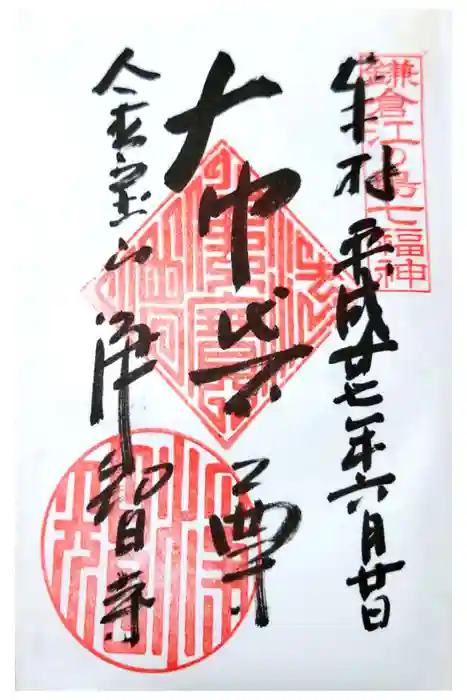 鎌倉江の島七福神
奉拝 平成廿七年六月廿日
布袋尊
金宝山浄智寺